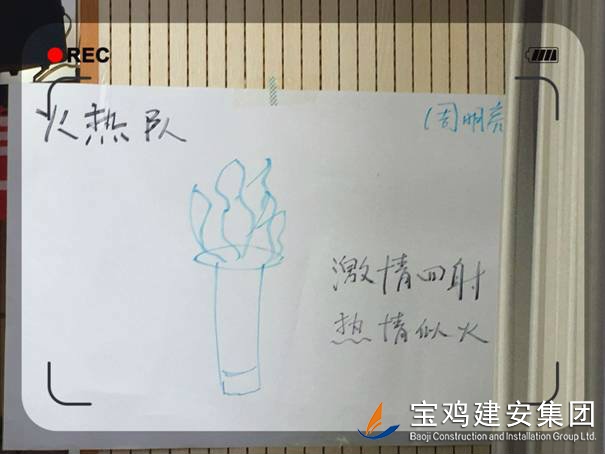 REC
火热队
(周明亮
激情四射
热情似火
宝鸡建安集团
Baoji Construction and Installation Group Ltd.